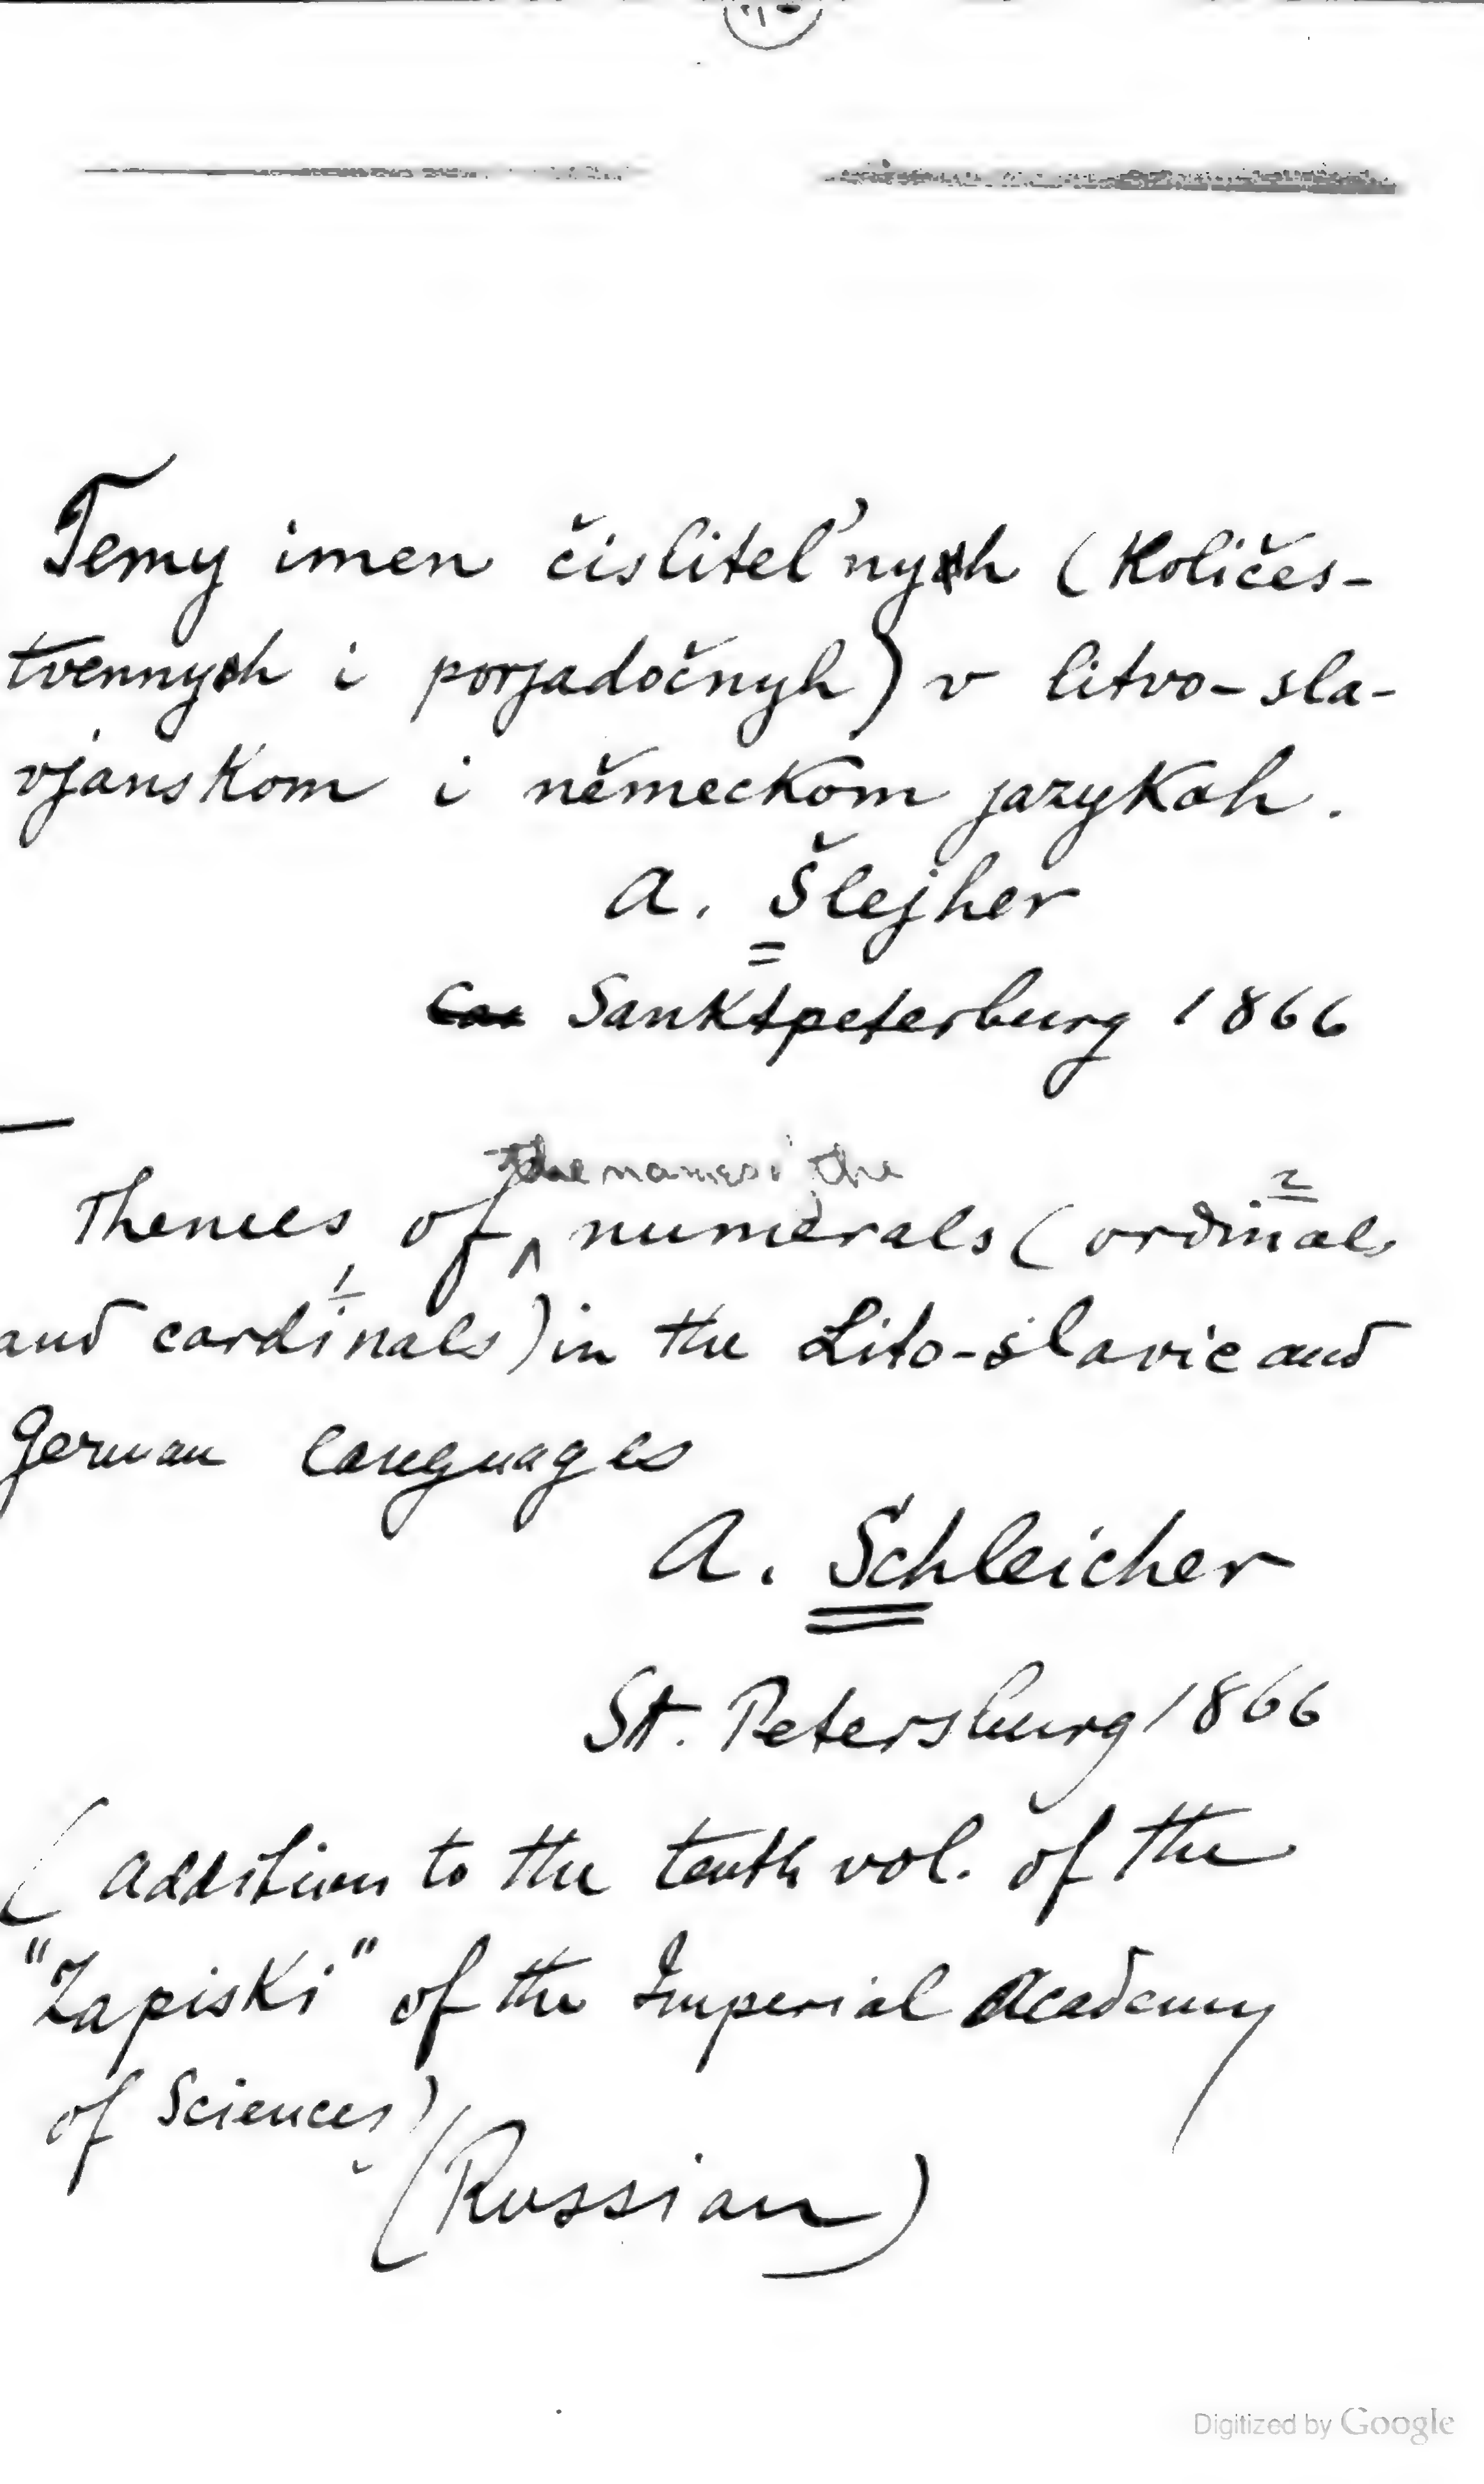 Temy imen čisliteľnyh (količes-
tvennyh i porjadočnyh) v litvo-sla-
vjanskom i německom jazykah.
A. Šlejher
Sanktpeterburg 1866
the names the
Themes of ^ numerals (ordinals
2
1
and cardinals) in the Lito-slavic and
German languages
A. Schleicher
St. Petersburg 1866
(addition to the tenth vol. of the
"Zapiski" of the Imperial Academy
of Sciences)
(Russian)
Digitized by Google